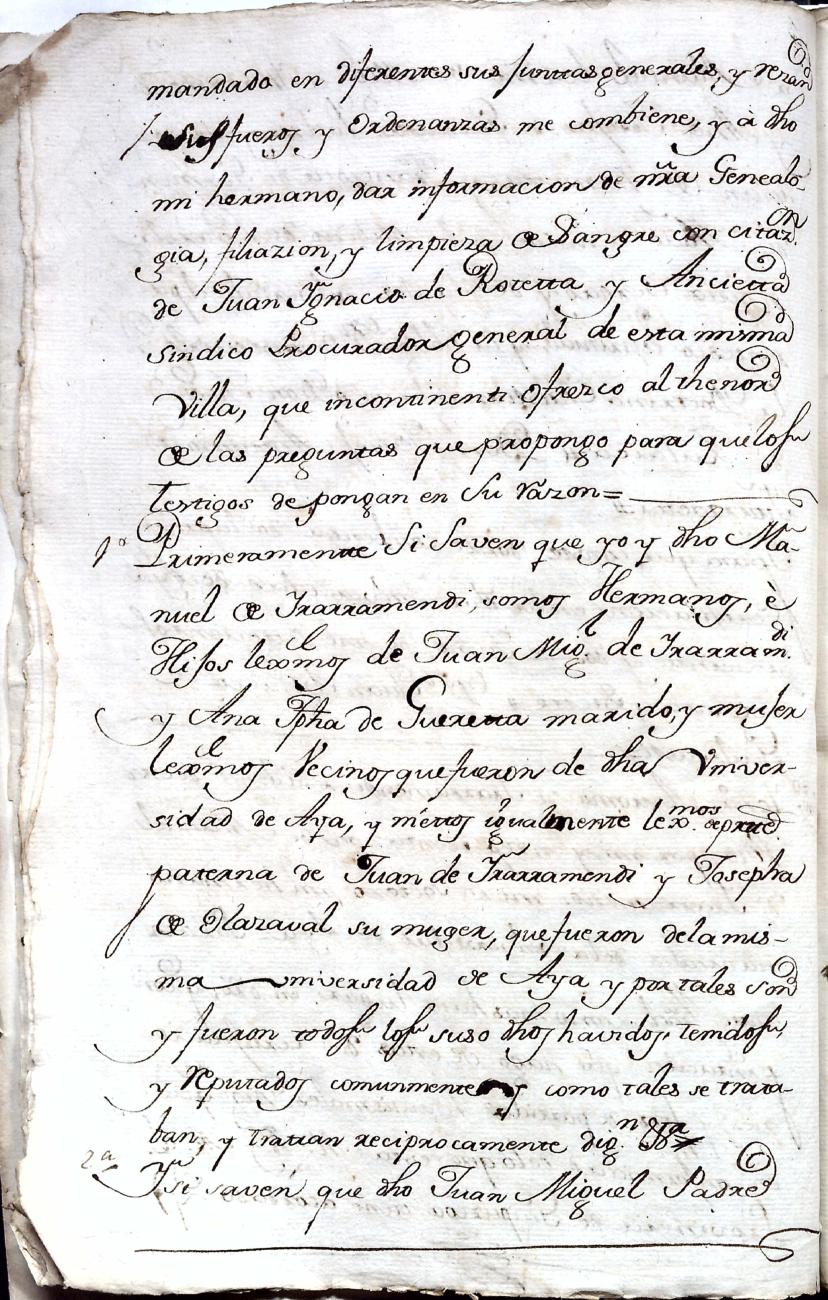 mandado en diferentes sus Juntas generales, y rezan
sus fueros y Ordenanzas me combiene, y à dho
mi hermano, dar informacion de nra Genealo-
gia, filiazion, y limpieza de Sangre con citaz.on
de Juan Ygnacio de Rotetta y Ancietta
sindico Procurador general de esta misma
Villa, que incontinenti ofrezco al thenor
de las preguntas que propongo para que los
testigos depongan en su razon=
1a Primeramente Si Saven que yo y dho Ma-
nuel de Yrarramendi, somos Hermanos, è
Hijos lexmos de Juan Migl. de Yrarramdi.
y Ana Jpha de Gueretta marido, y mujer
lexmos Vecinos que fueron de dha Vniver-
sidad de Aya, y niettos igualmente lex.mos de parte
paterna de Juan de Yrarramendi y Josepha
de Olazaval su muger, que fueron de la mis-
ma universidad de Aya y por tales son
y fueron todos los suso dhos havidos, tenidos,
y reputados comunmente y como tales se trata-
ban, y trattan reciprocamente dig.n
2a Ysi saven que dho Juan Miguel Padre